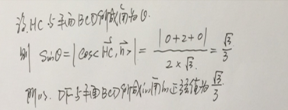 设HC与平面BCD所成角为θ.
则 sinθ=|cos<\vec{HC},\vec{n}>|=\frac{|0+2+0|}{2×\sqrt{3}}=\frac{\sqrt{3}}{3}
所以. DF与平面BCD所成的角的正弦值为\frac{\sqrt{3}}{3}